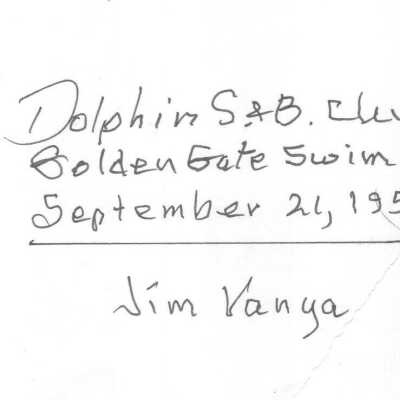 Dolphin S&B. Clu
Golden Gate Swim
September 21, 195
Jim Vanya